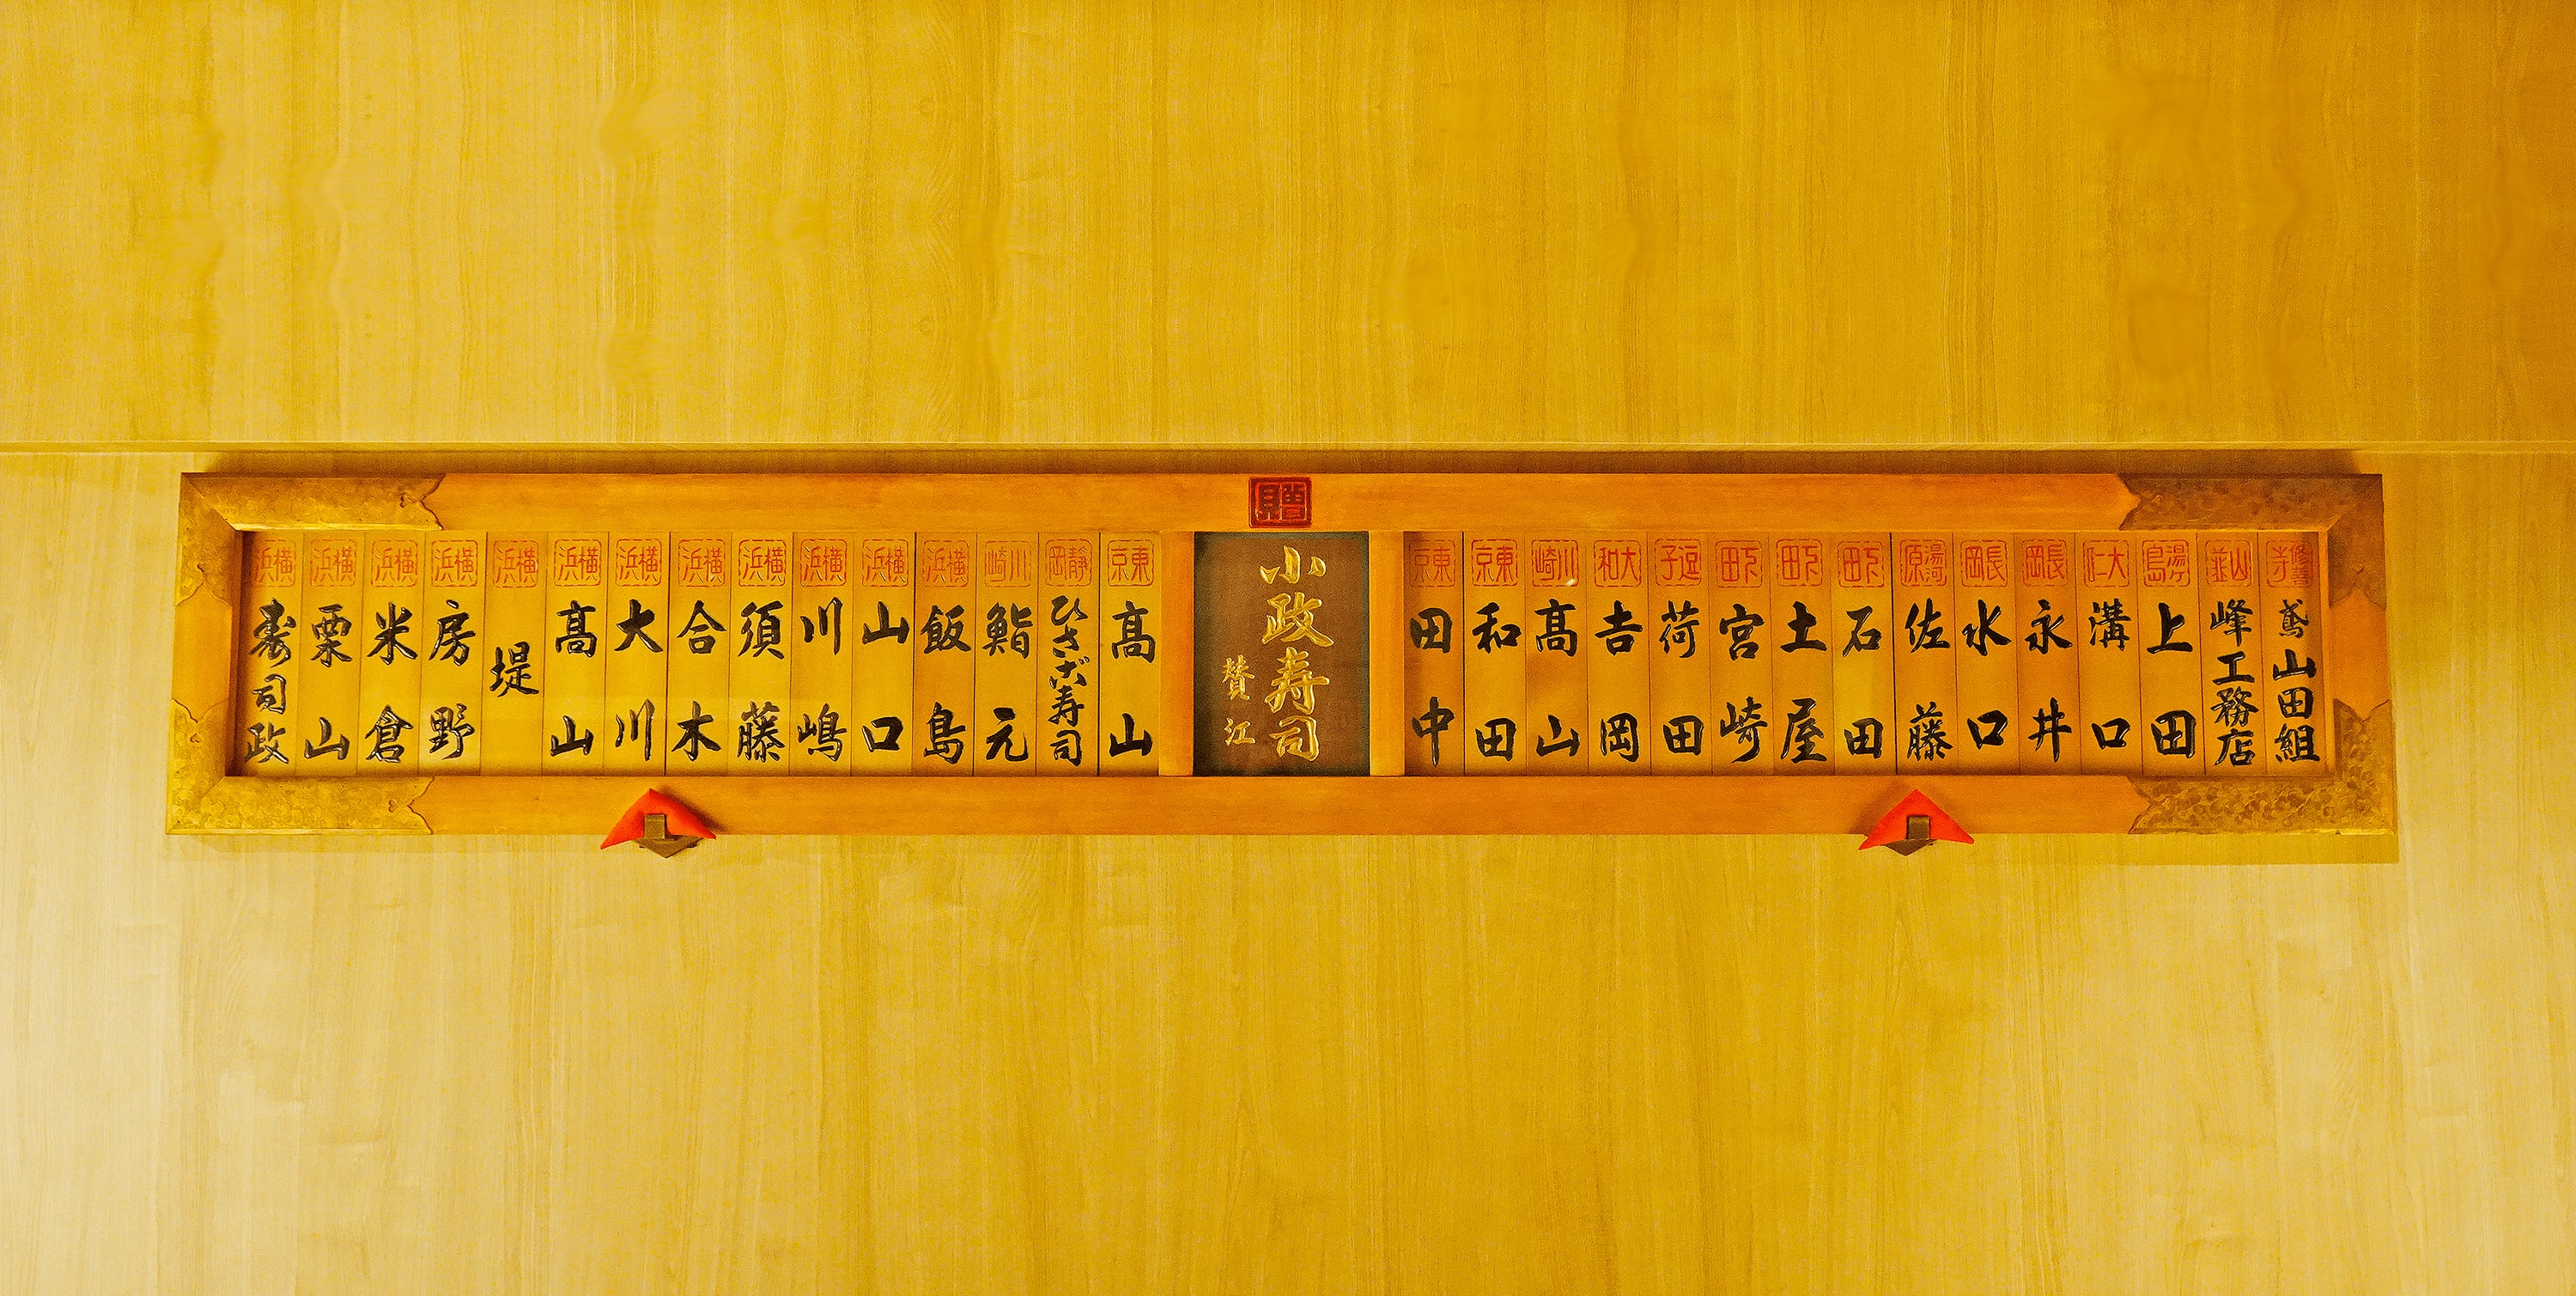 贈
修善寺 鳶山田組
韮山 峰工務店
湯ヶ島 上田
大仁 溝口
長岡 永井
長岡 水口
湯河原 佐藤
下田 石田
下田 土屋
下田 宮崎
逗子 荷田
大和 吉岡
川崎 髙山
東京 和田
東京 田中
小政寿司
賛江
東京 髙山
静岡 ひさご寿司
川崎 鮨元
横浜 飯島
横浜 山口
横浜 川嶋
横浜 須藤
横浜 合木
横浜 大川
横浜 髙山
横浜 堤
横浜 房野
横浜 米倉
横浜 栗山
横浜 壽司政